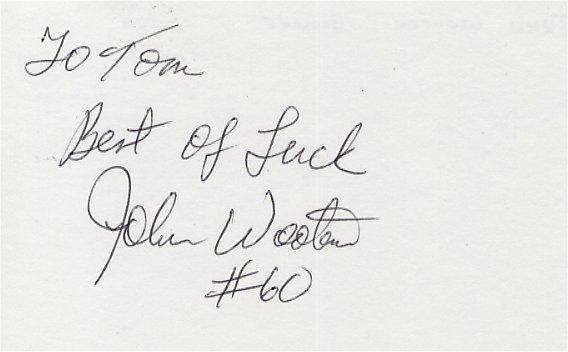 To Tom
Best of Luck
John Wooten
#60